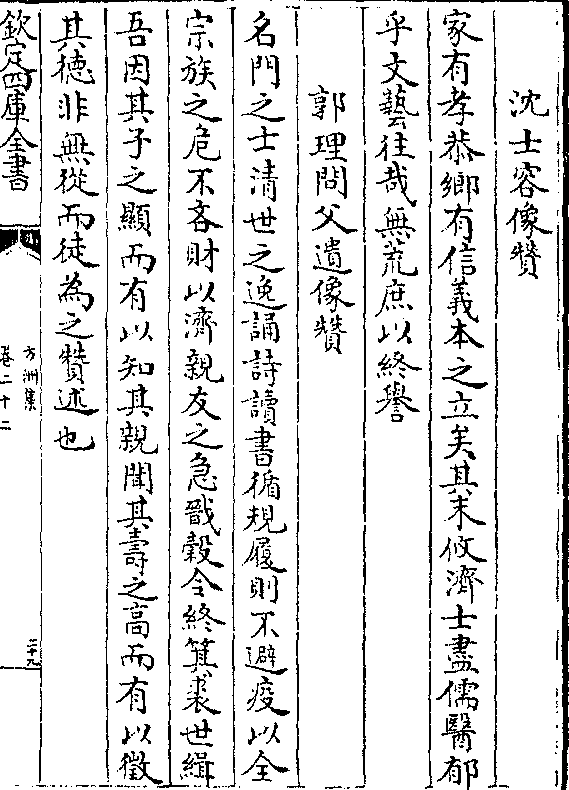 沈士容像贊
家有孝恭鄉有信義本之立矣其末攸濟士盡儒醫郁
乎文藝往哉無荒庶以終譽
郭理問父遺像贊
名門之士清世之逸誦詩讀書循規履則不避疫以全
宗族之危不吝財以濟親友之急戩穀令終箕裘世緝
吾因其子之顯而有以知其親聞其壽之高而有以徵
其德非無從而徒為之贊述也
欽定四庫全書
方洲集
卷二十二
二十九